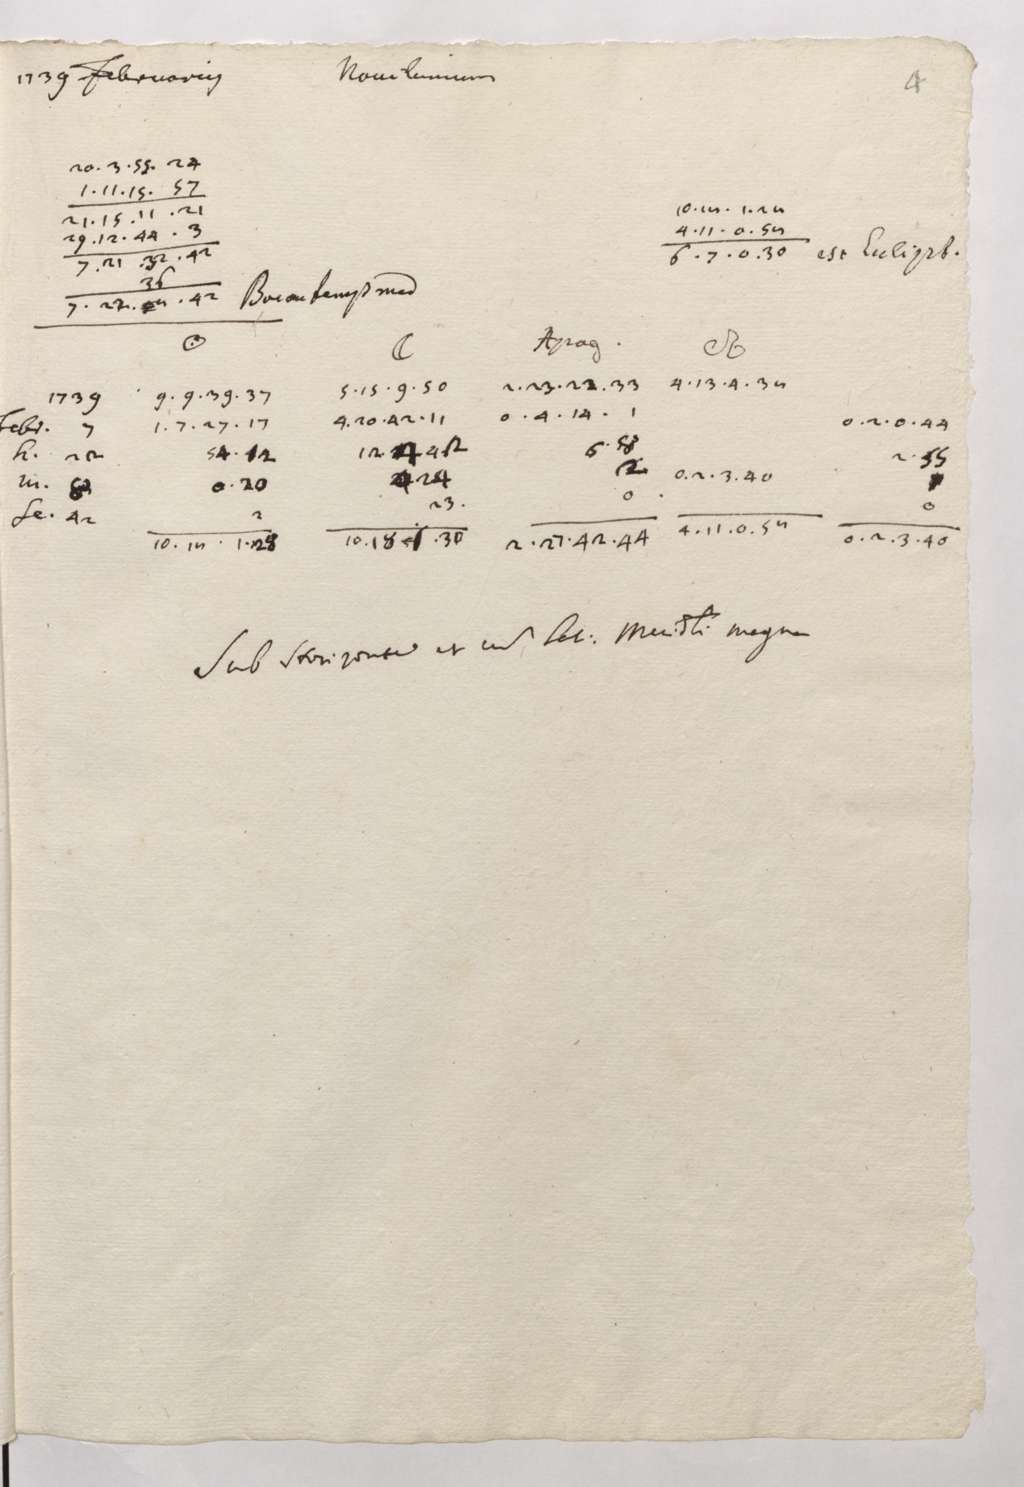 1739 Februarius Novilunium 4
20. 3. 55. 24
1. 11. 15. 57
21. 15. 11. 21
29. 12. 44. 3
7. 21. 32. 42
36
7. 22. 8. 42
10. 18. 1. 28
4. 11. 0. 54
6. 7. 0. 30 est Eclipsb.
☉ ☾ Apog. ☊
1739 9. 9. 39. 37 5. 15. 9. 50 2. 23. 22. 33 4. 13. 4. 34
Febr. 7 1. 7. 27. 17 4. 20. 42. 11 0. 4. 14. 1 0. 2. 0. 44
h. 22 54. 12 6. 58 2. 55
m. 8 0. 20 2 0. 2. 3. 40 1
se. 42 2 23. 0 0
10. 18. 1. 28 10. 18. 1. 30 2. 27. 42. 44 4. 11. 0. 54 0. 2. 3. 40
Sub Horizonte et magna